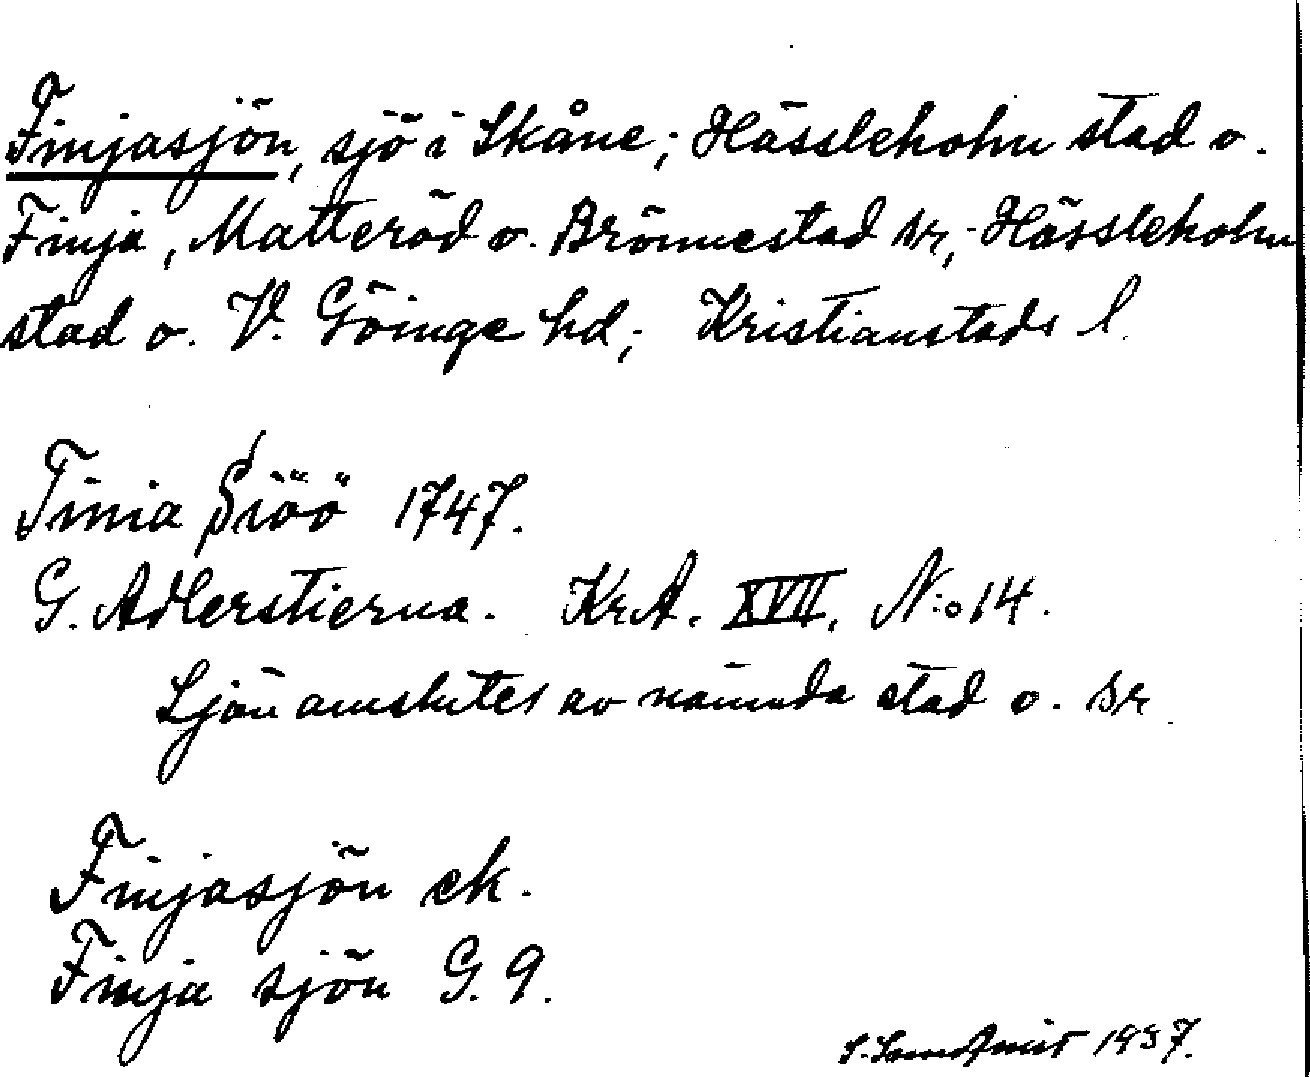 Finjasjön, sjö i Skåne; Hässleholm stad o.
Finja, Matteröd o. Brönnestad sr, Hässleholm
stad o. V. Göinge hd; Kristianstads l.
Finia Siöö 1747.
G. Adlerstierna. KrA. XVII, N:o 14.
Sjön omslutes av nämnda stad o. sr
Finjasjön ek.
Finja sjön G. 9.
S. Sundqvist 1937.